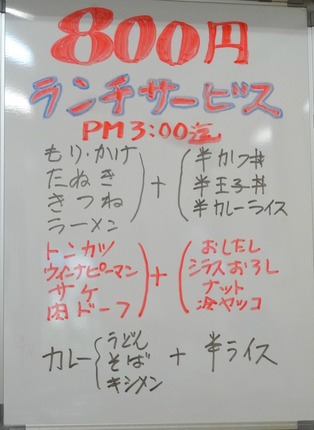 800円
ランチサービス
PM3:00迄
もり・かけ
たぬき
きつね
ラーメン
+
半カツ丼
半玉子丼
半カレーライス
トンカツ
ウィンナピーマン
サケ
肉ドーフ
+
おしたし
シラスおろし
ナット
冷ヤッコ
カレー
うどん
そば
キシメン
+
半ライス